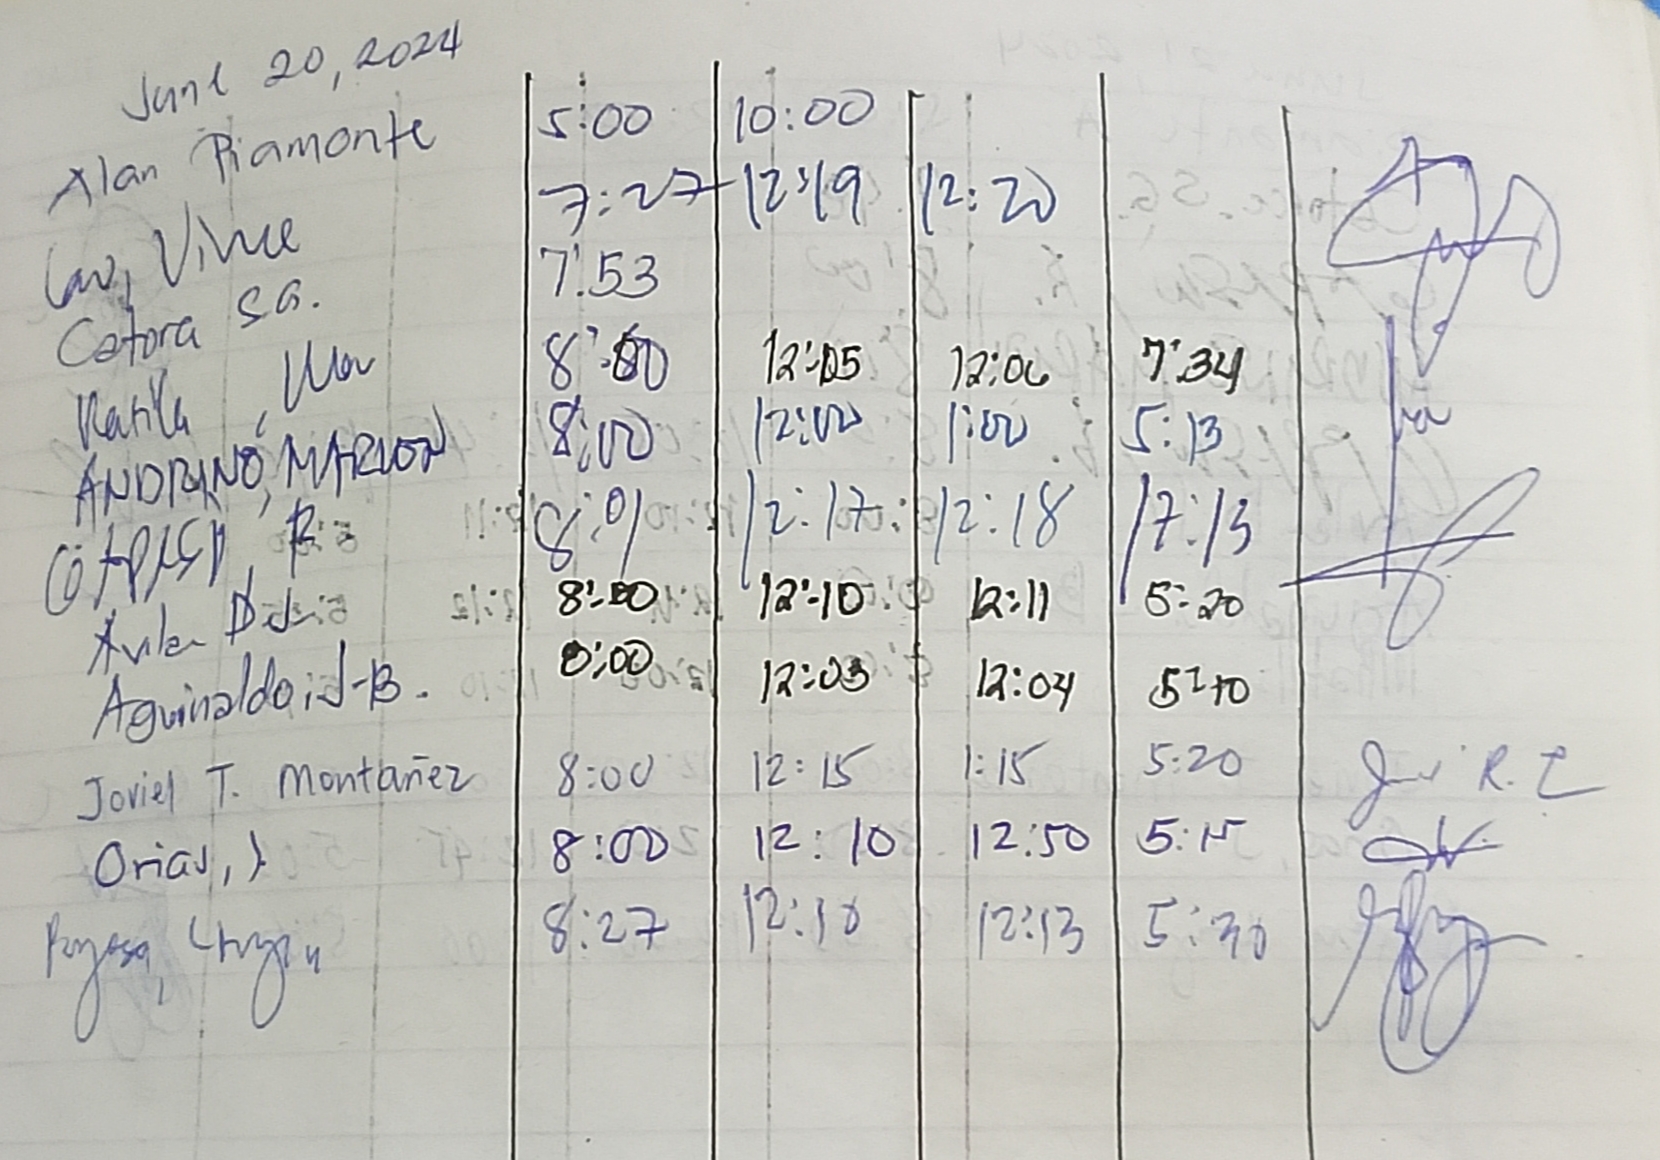 June 20, 2024
Alan Piamonte 5:00 10:00
Vince 7:27 12:19 12:20
Catora S.G. 7:53
8:00 12:05 12:06 7:34
ANDRINO, MARLON 8:00 12:00 1:00 5:13
8:01 12:17 12:18 17:13
Avila D.J 8:00 12:10 12:11 5:20
Aguinaldo, J-B. 8:00 12:03 12:04 5:10
Joviel T. Montañez 8:00 12:15 1:15 5:20
Orias, J 8:00 12:10 12:50 5:15
8:27 12:10 12:13 5:30